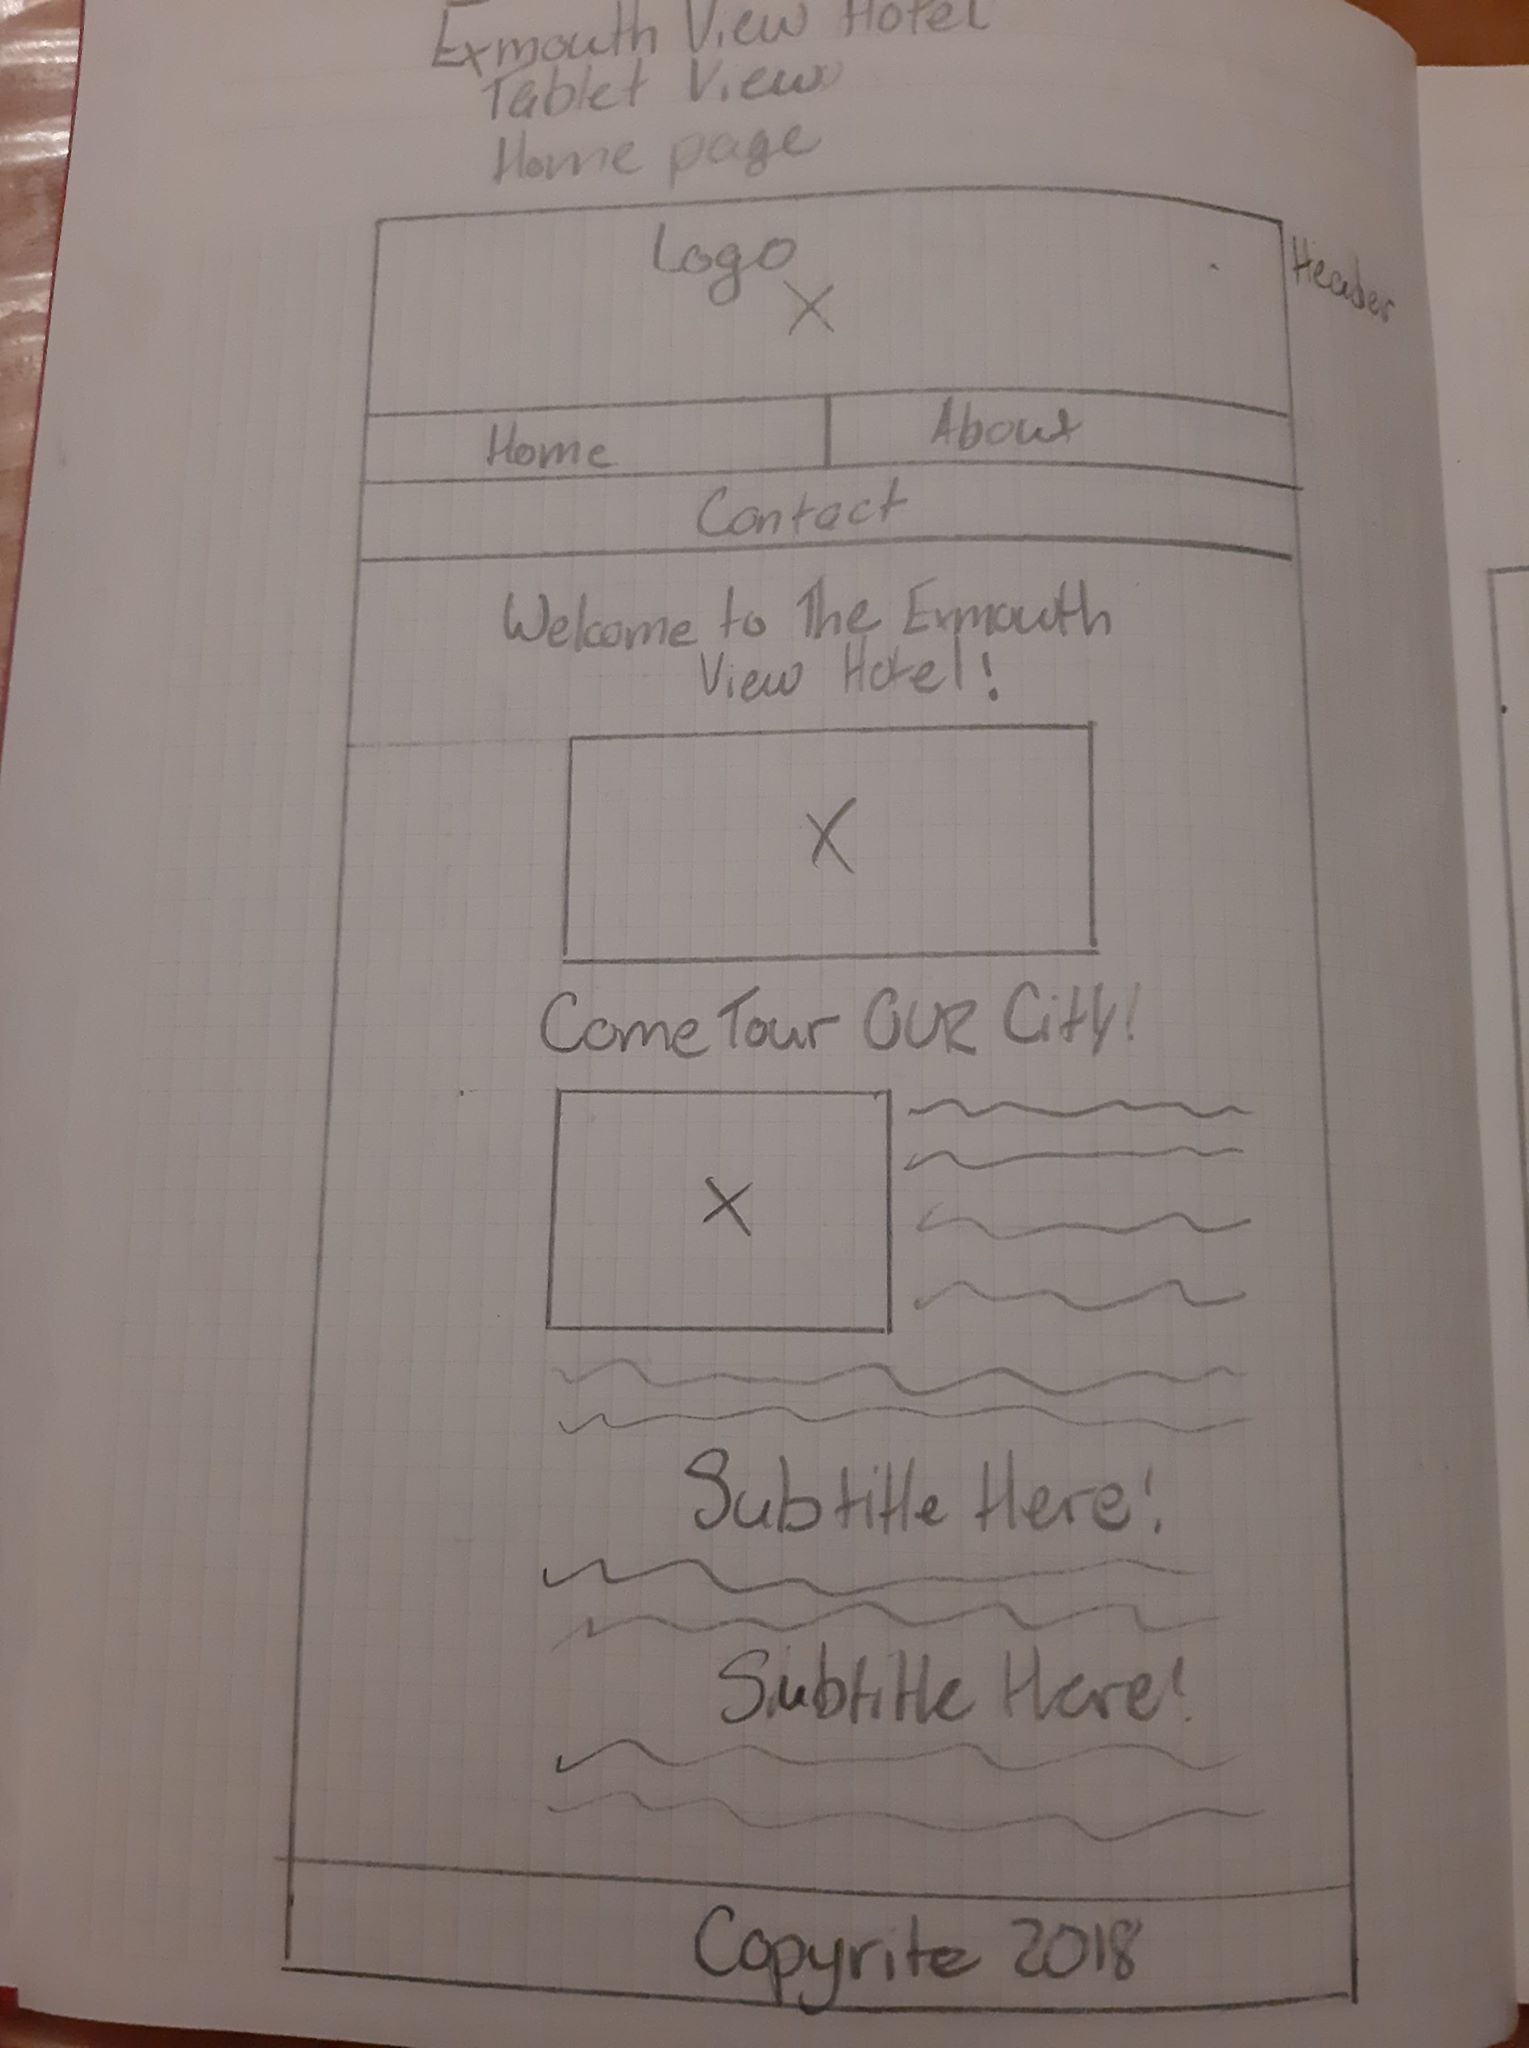 Exmouth View Hotel
Tablet View
Home page
Logo
X
Header
Home About
Contact
Welcome to The Exmouth
View Hotel!
X
Come Tour OUR City!
X
Subtitle Here!
Subtitle Here!
Copyrite 2018